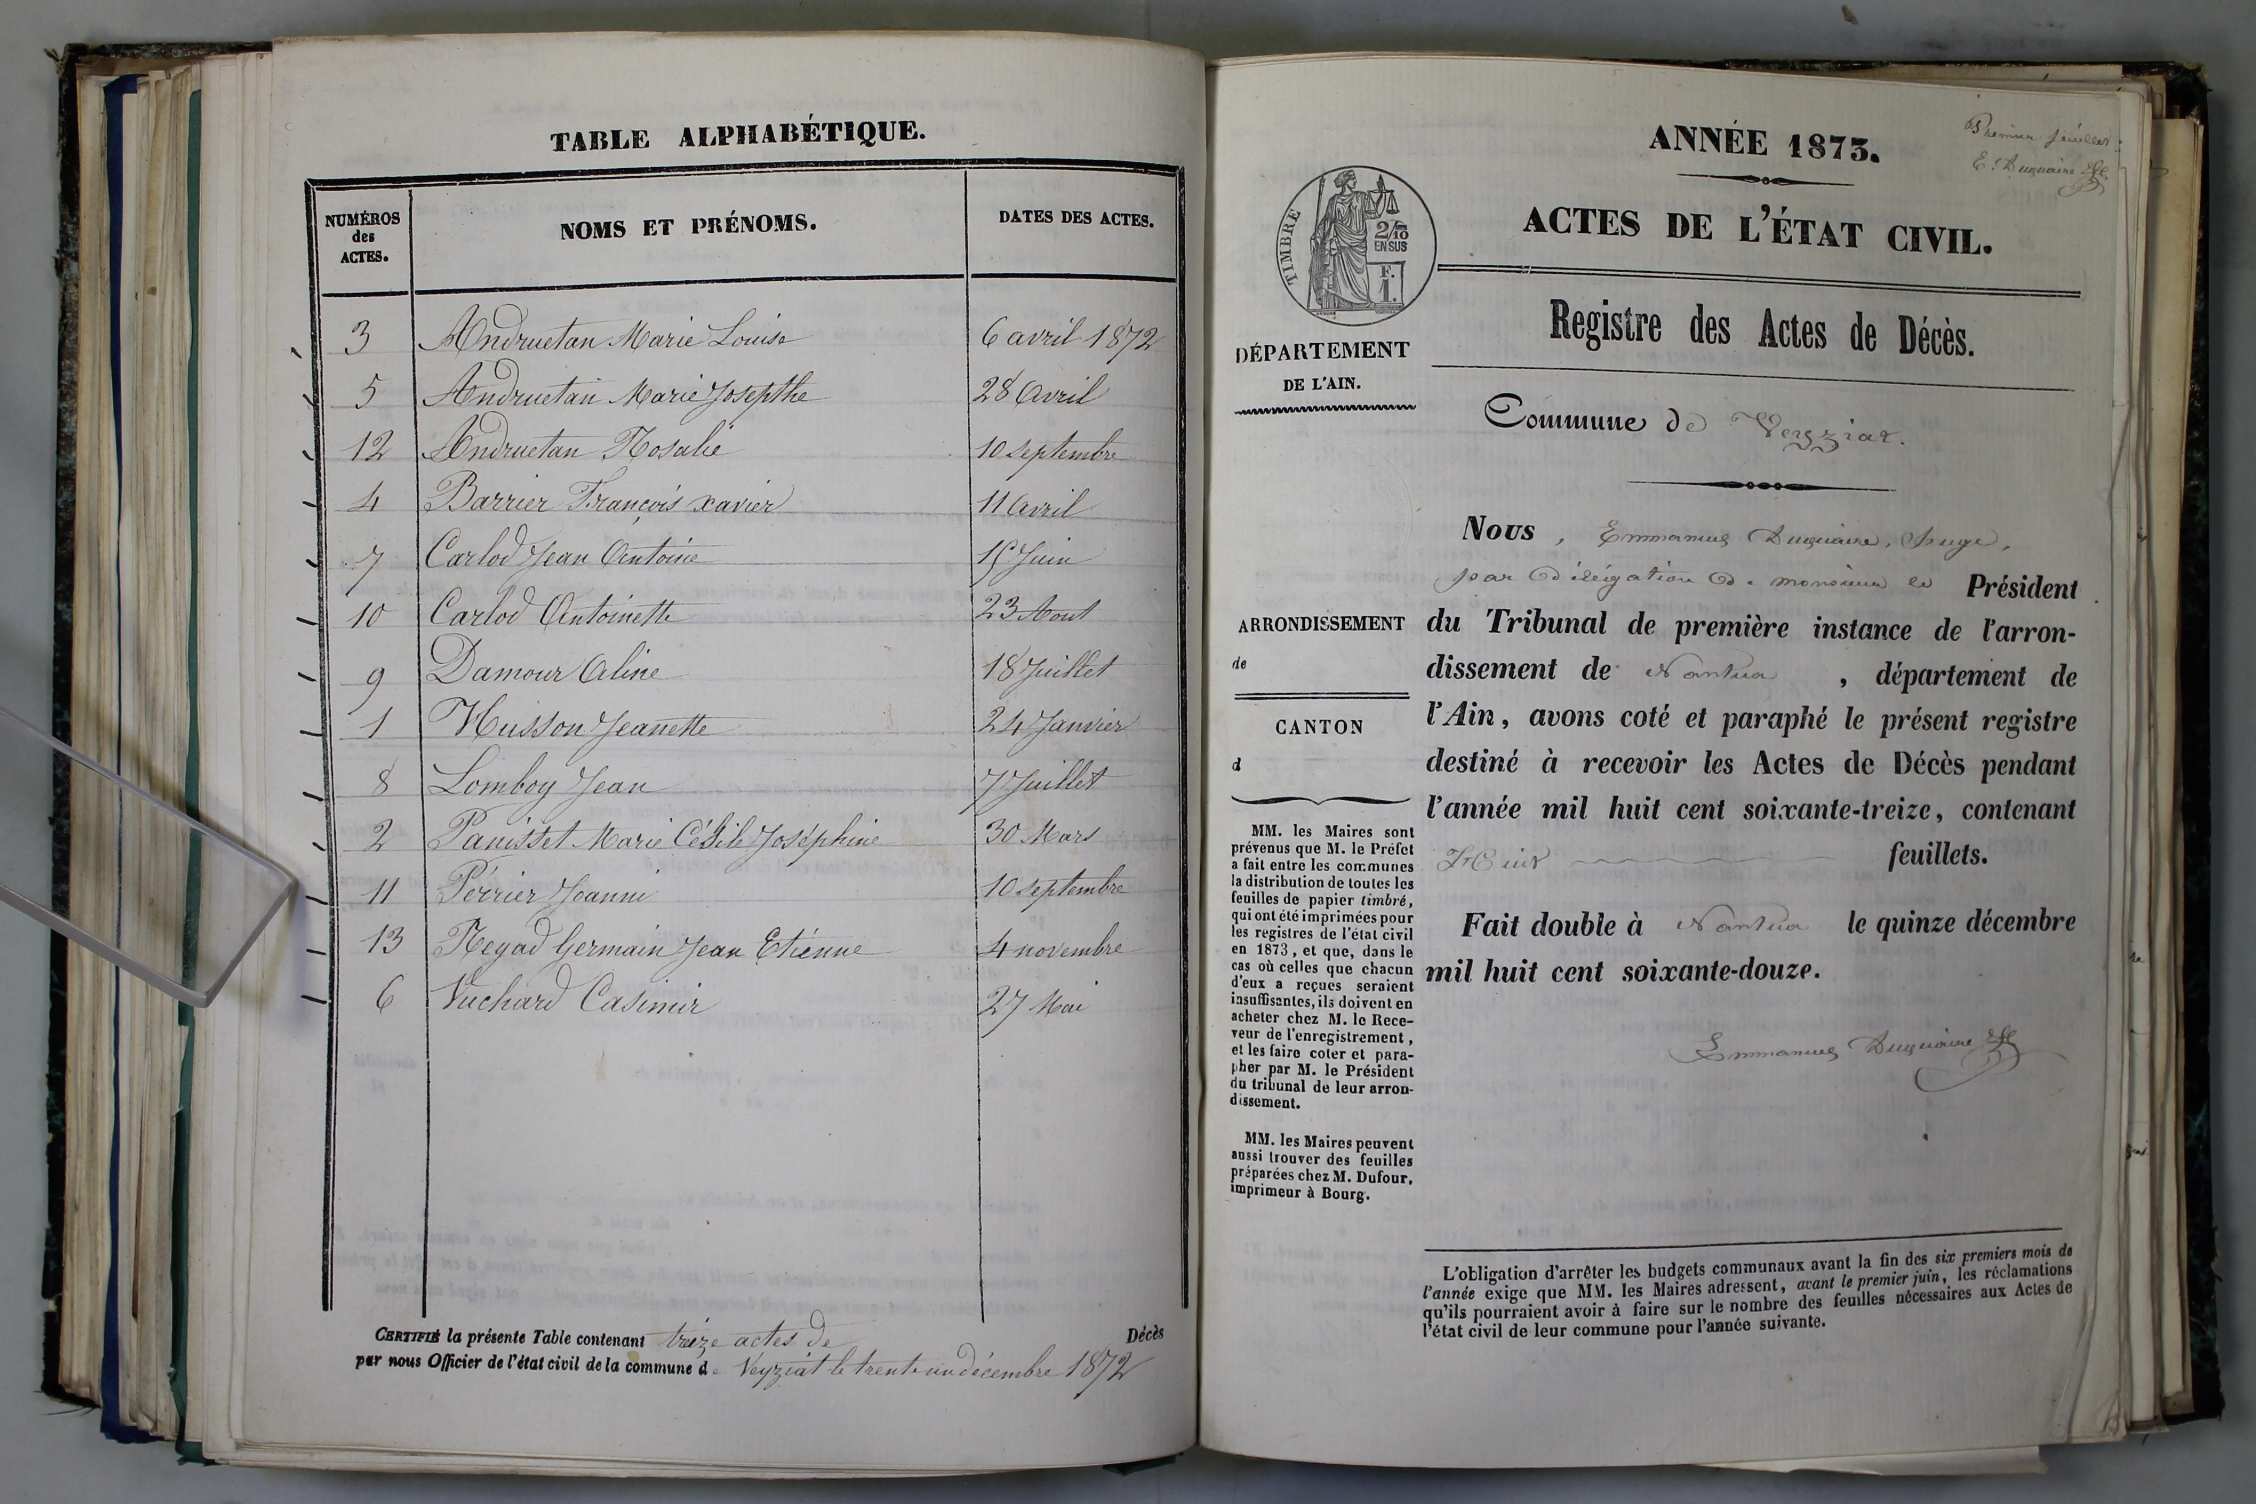 TABLE ALPHABÉTIQUE.
NUMÉROS des ACTES.
NOMS ET PRÉNOMS.
DATES DES ACTES.
3 Andruetan Marie Louise 6 avril 1872
5 Andruetan Marie Josepthe 28 Avril
12 Andruetan Rosalie 10 septembre
4 Barrier François xavier 11 Avril
7 Carlod Jean Antoine 15 Juin
10 Carlod Antoinette 23 Aout
9 Damour Aline 18 Juillet
1 Husson Jeanette 24 Janvier
8 Lomboy Jean 7 Juillet
2 Panisset Marie Césile Joséphine 30 Mars
11 Périer Jeanni 10 septembre
13 Regad Germain Jean Etienne 4 novembre
6 Vuchard Casimir 27 Mai
CERTIFIÉ la présente Table contenant treize actes de Décès
par nous Officier de l'état civil de la commune de Veyziat le trente un décembre 1872
Premier feuillet:
El Duquaire
ANNÉE 1873.
ACTES DE L'ÉTAT CIVIL.
TIMBRE
2/10
EN SUS
F.
1.
Registre des Actes de Décès.
DÉPARTEMENT
DE L'AIN.
Commune de Veyziat.
Nous, Emmanuel Duquaire, Juge,
par délégation de monsieur le Président
du Tribunal de première instance de l'arron-
dissement de Nantua, département de
l'Ain, avons coté et paraphé le présent registre
destiné à recevoir les Actes de Décès pendant
l'année mil huit cent soixante-treize, contenant
Huit feuillets.
Fait double à Nantua le quinze décembre
mil huit cent soixante-douze.
Emmanuel Duquaire
ARRONDISSEMENT
de
CANTON
d
MM. les Maires sont
prévenus que M. le Préfet
a fait entre les communes
la distribution de toutes les
feuilles de papier timbré,
qui ont été imprimées pour
les registres de l'état civil
en 1873, et que, dans le
cas où celles que chacun
d'eux a reçues seraient
insuffisantes, ils doivent en
acheter chez M. le Rece-
veur de l'enregistrement,
et les faire coter et para-
pher par M. le Président
du tribunal de leur arron-
dissement.
MM. les Maires peuvent
aussi trouver des feuilles
préparées chez M. Dufour,
imprimeur à Bourg.
L'obligation d'arrêter les budgets communaux avant la fin des six premiers mois de
l'année exige que MM. les Maires adressent, avant le premier juin, les réclamations
qu'ils pourraient avoir à faire sur le nombre des feuilles nécessaires aux Actes de
l'état civil de leur commune pour l'année suivante.